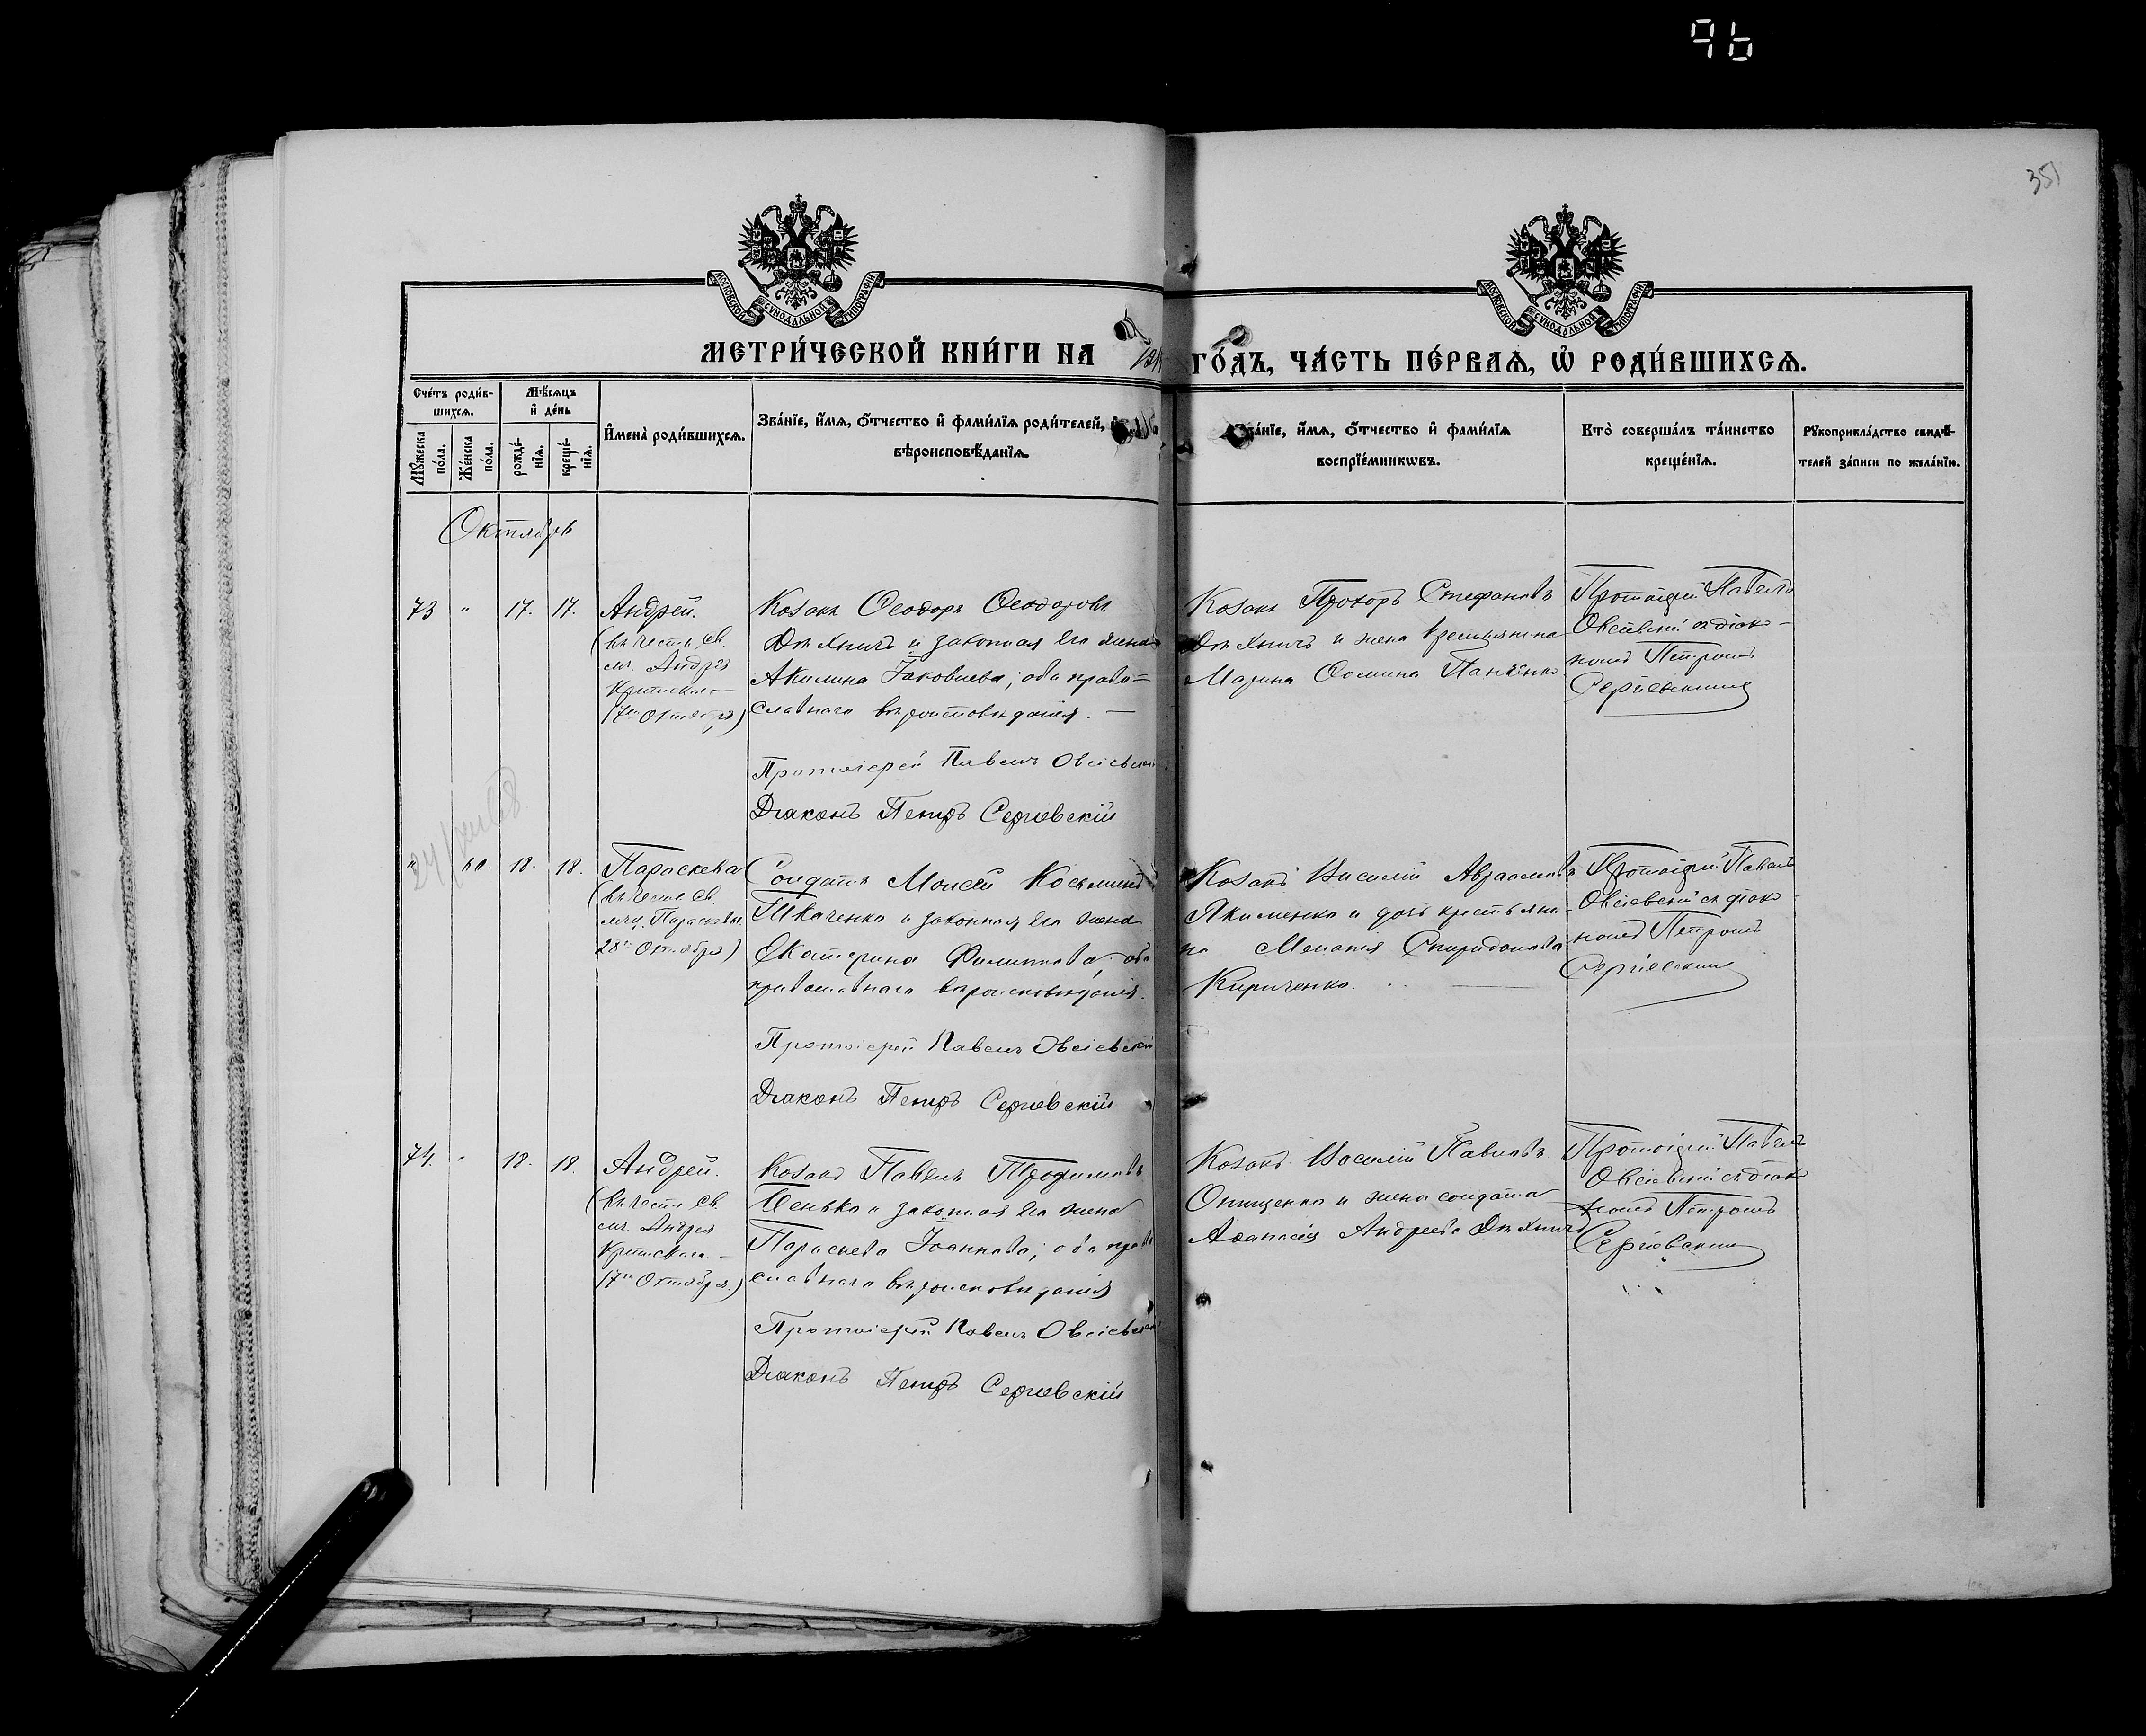 96
351
МОСКОВСКОЙ СѴНОДАЛЬНОЙ ТИПОГРАФІИ
МОСКОВСКОЙ СѴНОДАЛЬНОЙ ТИПОГРАФІИ
МЕТРИ́ЧЕСКОЙ КНИ́ГИ НА
ГО́ДЪ, ЧА́СТЬ ПЕ́РВАѦ, Ѡ҆ РОДИ́ВШИХСѦ.
Сче́тъ роди́в-
шихсѧ.
Мꙋ́жеска
по́ла.
Же́нска
по́ла.
Мѣ́сѧцъ
и҆ де́нь
рожде́-
нїѧ.
креще́-
нїѧ.
И҆мена̀ роди́вшихсѧ.
Зва́нїе, и҆́мѧ, ѻ҆́тчество и҆ фами́лїѧ роди́телей, и҆
вѣроисповѣ́данїѧ.
Зва́нїе, и҆́мѧ, ѻ҆́тчество и҆ фами́лїѧ
воспрїе́мникѡвъ.
Кто̀ соверша́лъ та́инство
креще́нїѧ.
Рꙋкоприкла́дство свидѣ́-
телей за́писи по жела́нїю.
Октябрь
73 " 17. 17. Андрей.
(въ честь св.
мч. Андрея
Критскаго
17го Октября)
Козакъ Ѳеодоръ Ѳеодоровъ
и законная его жена
Акилина Іаковлева; оба право=
славнаго вѣроисповѣданія. —
Протоіерей Павелъ Овсіевскій
Діаконъ Петръ Сергіевскій
Козакъ Прохоръ Стефановъ
и жена крестьянина
Марина Ѳомина Панченко
Протоіерей Павелъ
Овсіевскій съ діако-
номъ Петромъ
Сергіевскимъ
" 60. 18. 18. Параскева
(въ честь св.
мчц. Параскевы
28го Октября)
Солдатъ Моисей Косьминъ
Ткаченко и законная его жена
Екатерина Филиппова, оба
православнаго вѣроисповѣданія.
Протоіерей Павелъ Овсіевскій
Діаконъ Петръ Сергіевскій
Козакъ Василій Авраамовъ
Якименко и дочь крестьяни-
на Меланія Спиридонова
Кириченко.
Протоіерей Павелъ
Овсіевскій съ діако-
номъ Петромъ
Сергіевскимъ
74. " 18. 18. Андрей.
(въ честь св.
мч. Андрея
Критскаго. —
17го Октября.)
Козакъ Павелъ Трофимовъ
и законная его жена
Параскева Іоаннова; оба право
славнаго вѣроисповѣданія
Протоіерей Павелъ Овсіевскій
Діаконъ Петръ Сергіевскій
Козакъ Василій Павловъ
Онищенко и жена солдата
Аѳанасія Андреева
Протоіерей Павелъ
Овсіевскій съ діако
номъ Петромъ
Сергіевскимъ